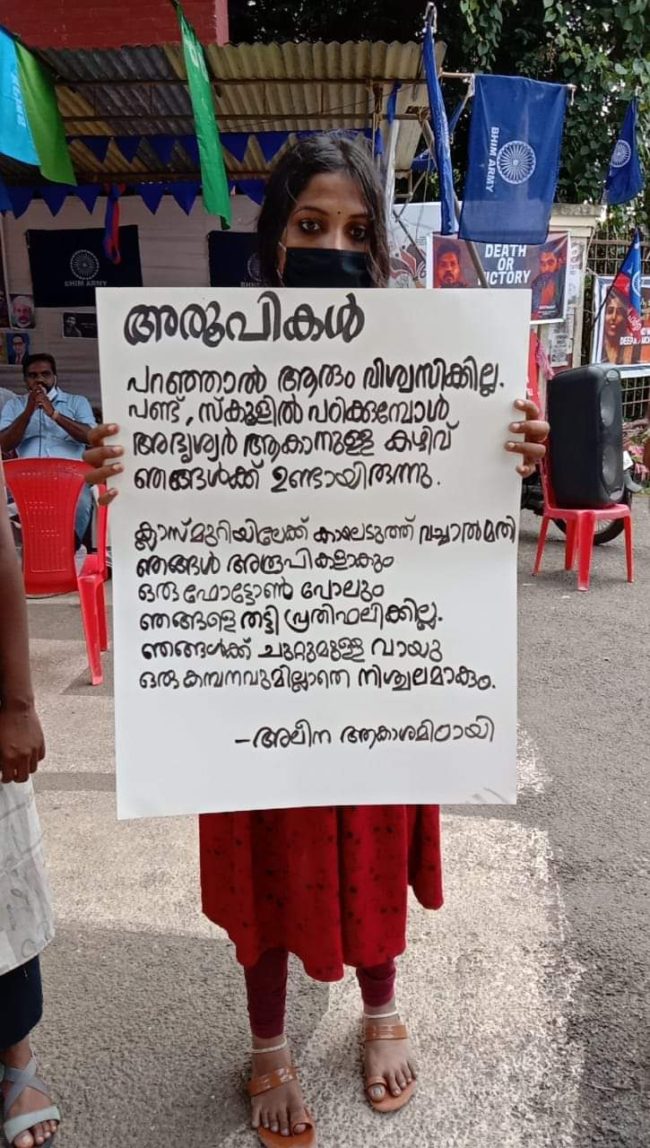 അരൂപികൾ
പറഞ്ഞാൽ ആരും വിശ്വസിക്കില്ല.
പണ്ട്, സ്കൂളിൽ പഠിക്കുമ്പോൾ
അദൃശ്യർ ആകാനുള്ള കഴിവ്
ഞങ്ങൾക്ക് ഉണ്ടായിരുന്നു.
ക്ലാസ്മുറിയിലേക്ക് കാലെടുത്ത് വച്ചാൽമതി
ഞങ്ങൾ അരൂപികളാകും
ഒരു ഫോട്ടോൺ പോലും
ഞങ്ങളെ തട്ടി പ്രതിഫലിക്കില്ല.
ഞങ്ങൾക്ക് ചുറ്റുമുള്ള വായു
ഒരു കമ്പനവുമില്ലാതെ നിശ്ചലമാകും.
-അലീന ആകാശമിഠായി
BHIM ARMY
BHIM ARMY
BHIM ARMY
DEATH
OR
VICTORY